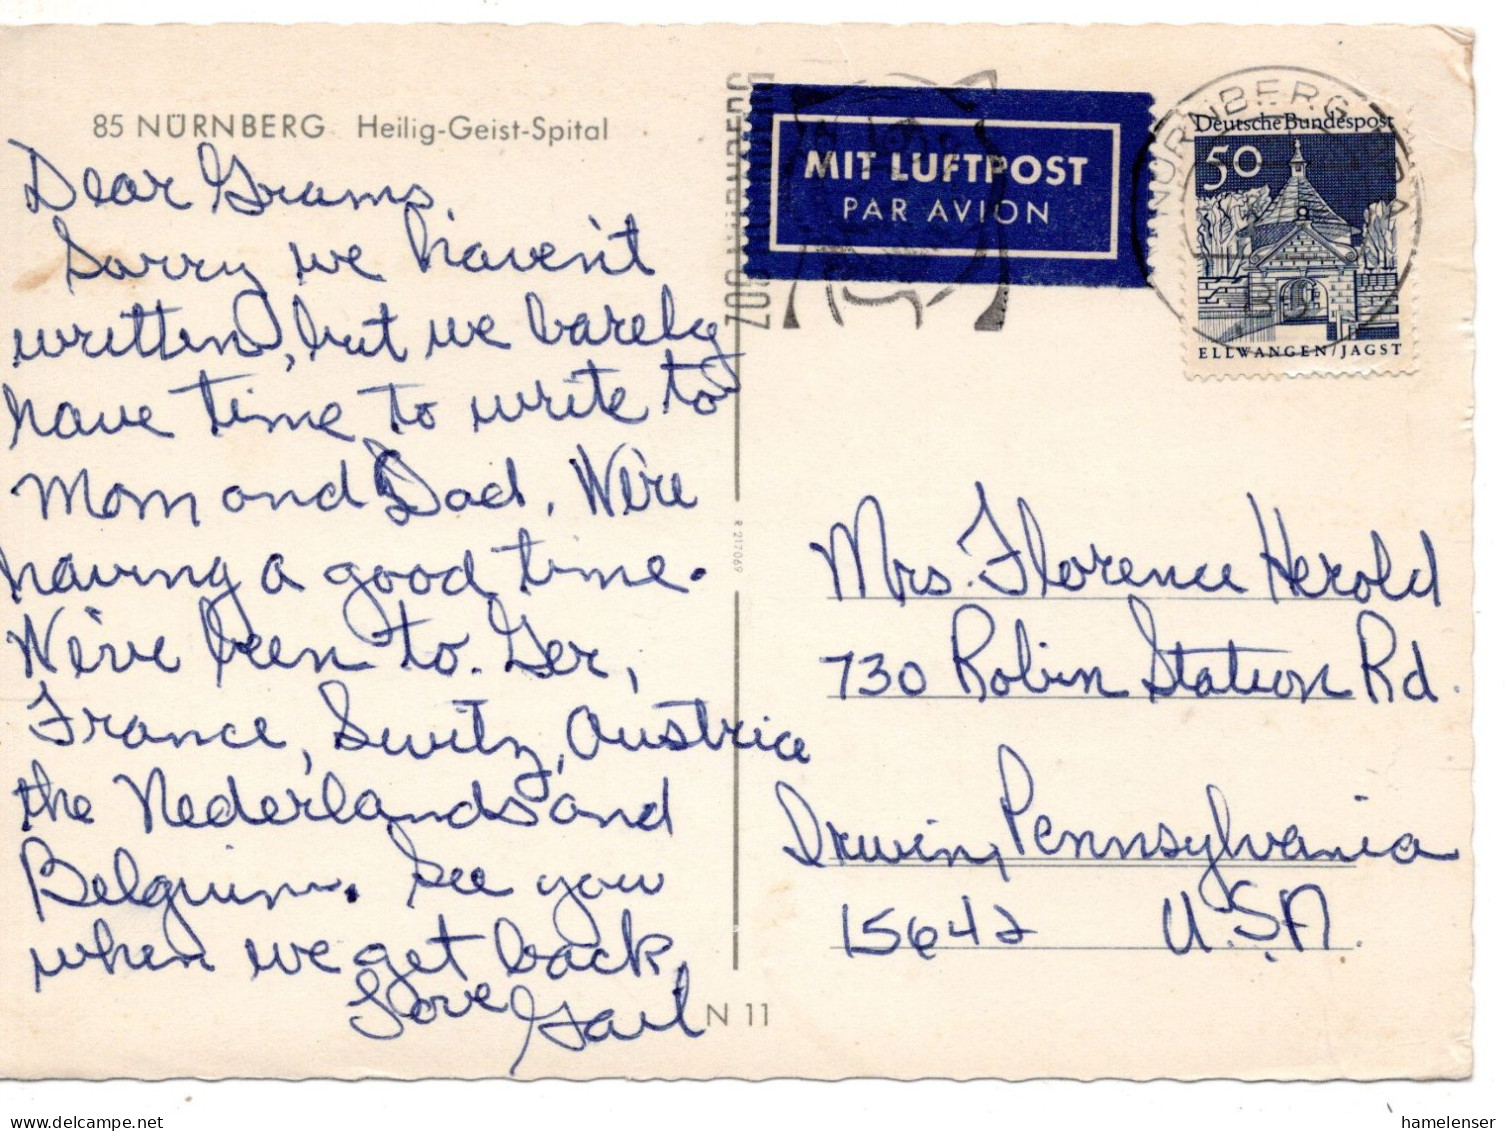 85 NÜRNBERG Heilig-Geist-Spital
Dear Grams,
Sorry we haven't
written, but we barely
have time to write to
Mom and Dad. We're
having a good time.
We've been to Ger,
France, Switz, Austria
the Nederlands and
Belgium. See you
when we get back,
Love Gail
ZOO NÜRNBERG
MIT LUFTPOST
PAR AVION
NÜRNBERG
Deutsche Bundespost
50
ELLWANGEN/JAGST
R 217069
Mrs. Florence Herold
730 Robin Station Rd.
Irwin, Pennsylvania
15642 U.S.A.
N 11
www.delcampe.net
hamelenser